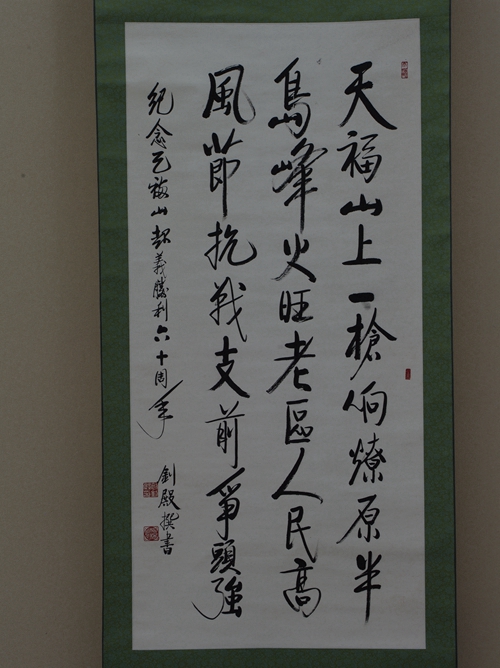 天福山上一槍响燎原半
島峰火旺老區人民高
風節抗战支前爭頭強
紀念天福山起義勝利六十周年
劉殿撰書